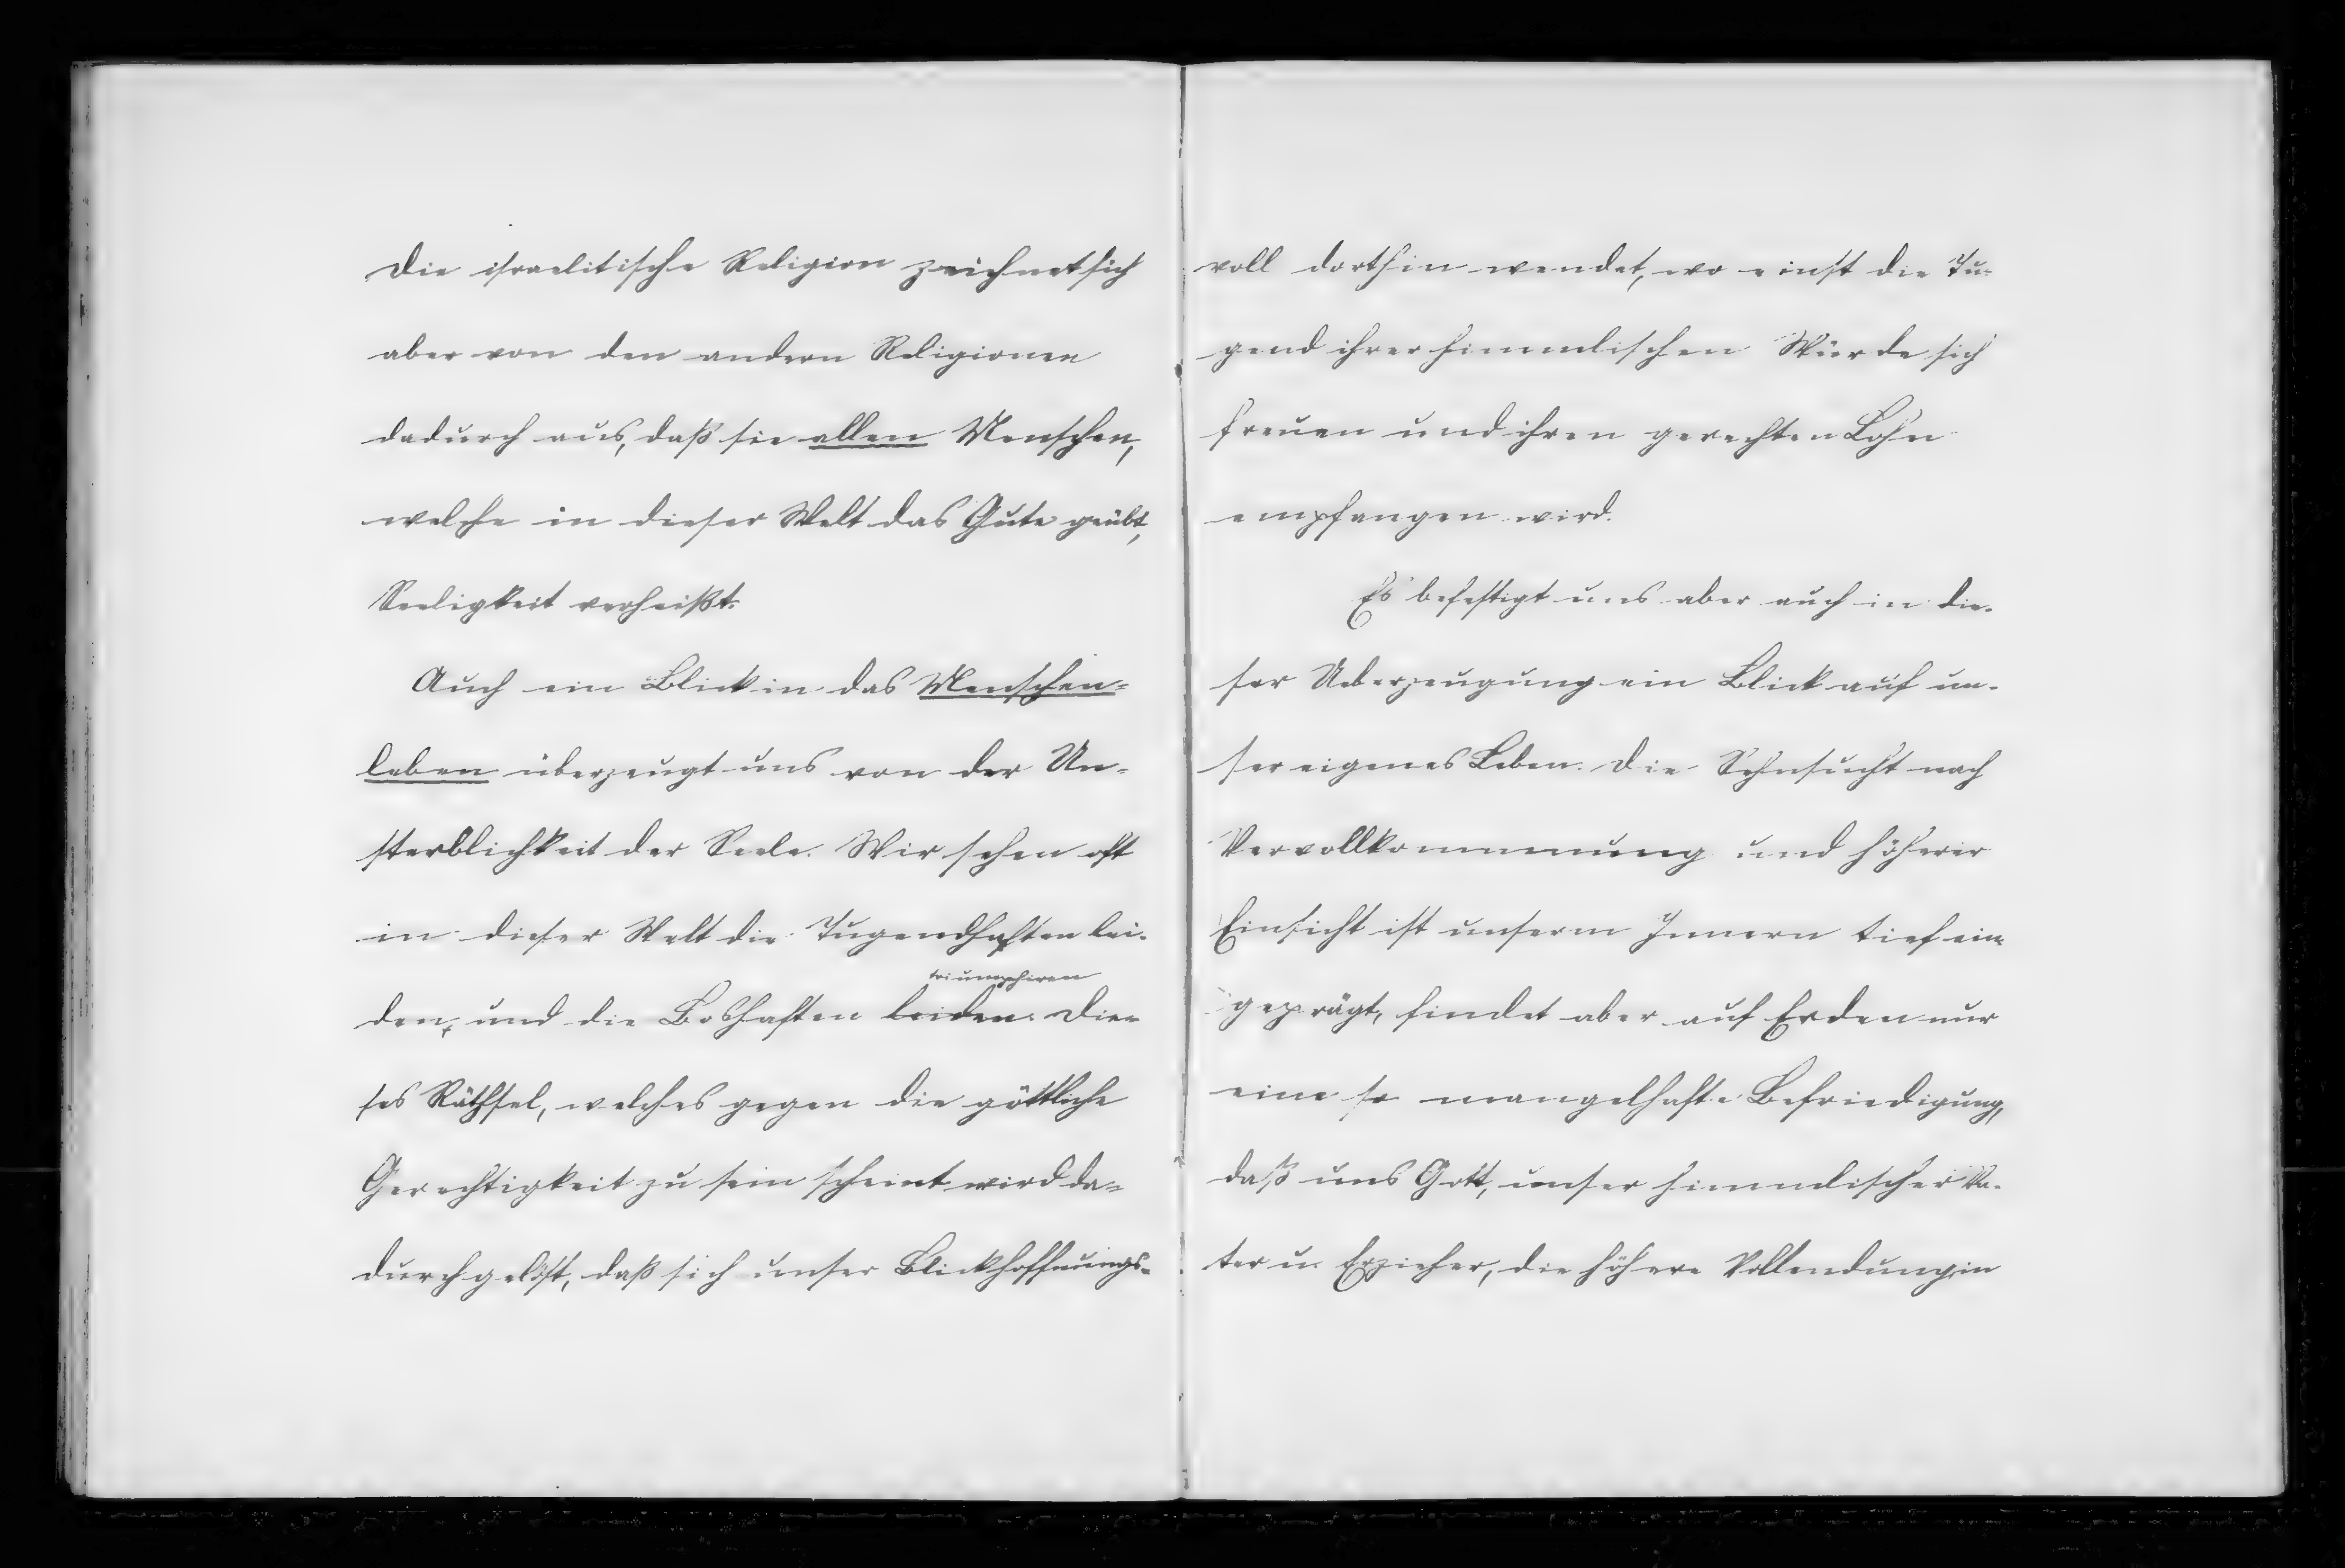 Die israelitische Religion zeichnet sich
aber von den andern Religionen
dadurch aus, daß sie allen Menschen,
welche in dieser Welt das Gute geübt,
Seeligkeit verheißt.
Auch ein Blick in das Menschen-
leben überzeugt uns von der Un-
sterblichkeit der Seele. Wir sehen oft
in dieser Welt die Tugendhaften lei-
triumphiren
den, und die Boshaften leiden. Die-
ses Räthsel, welches gegen die göttliche
Gerechtigkeit zu sein scheint wird da-
durch gelöst, daß sich unser Blick hoffnungs-
voll dorthin wendet, wo einst die Tu-
gend ihrer himmlischen Würde sich
freuen und ihren gerechten Lohn
empfangen wird.
Es befestigt uns aber auch in die-
ser Ueberzeugung ein Blick auf un-
ser eigenes Leben. Die Sehnsucht nach
Vervollkommnung und höherer
Einsicht ist unserm Innern tief ein-
geprägt, findet aber auf Erden nur
eine so mangelhafte Befriedigung,
daß uns Gott, unser himmlischer Va-
ter u. Erzieher, die höhere Vollendung in